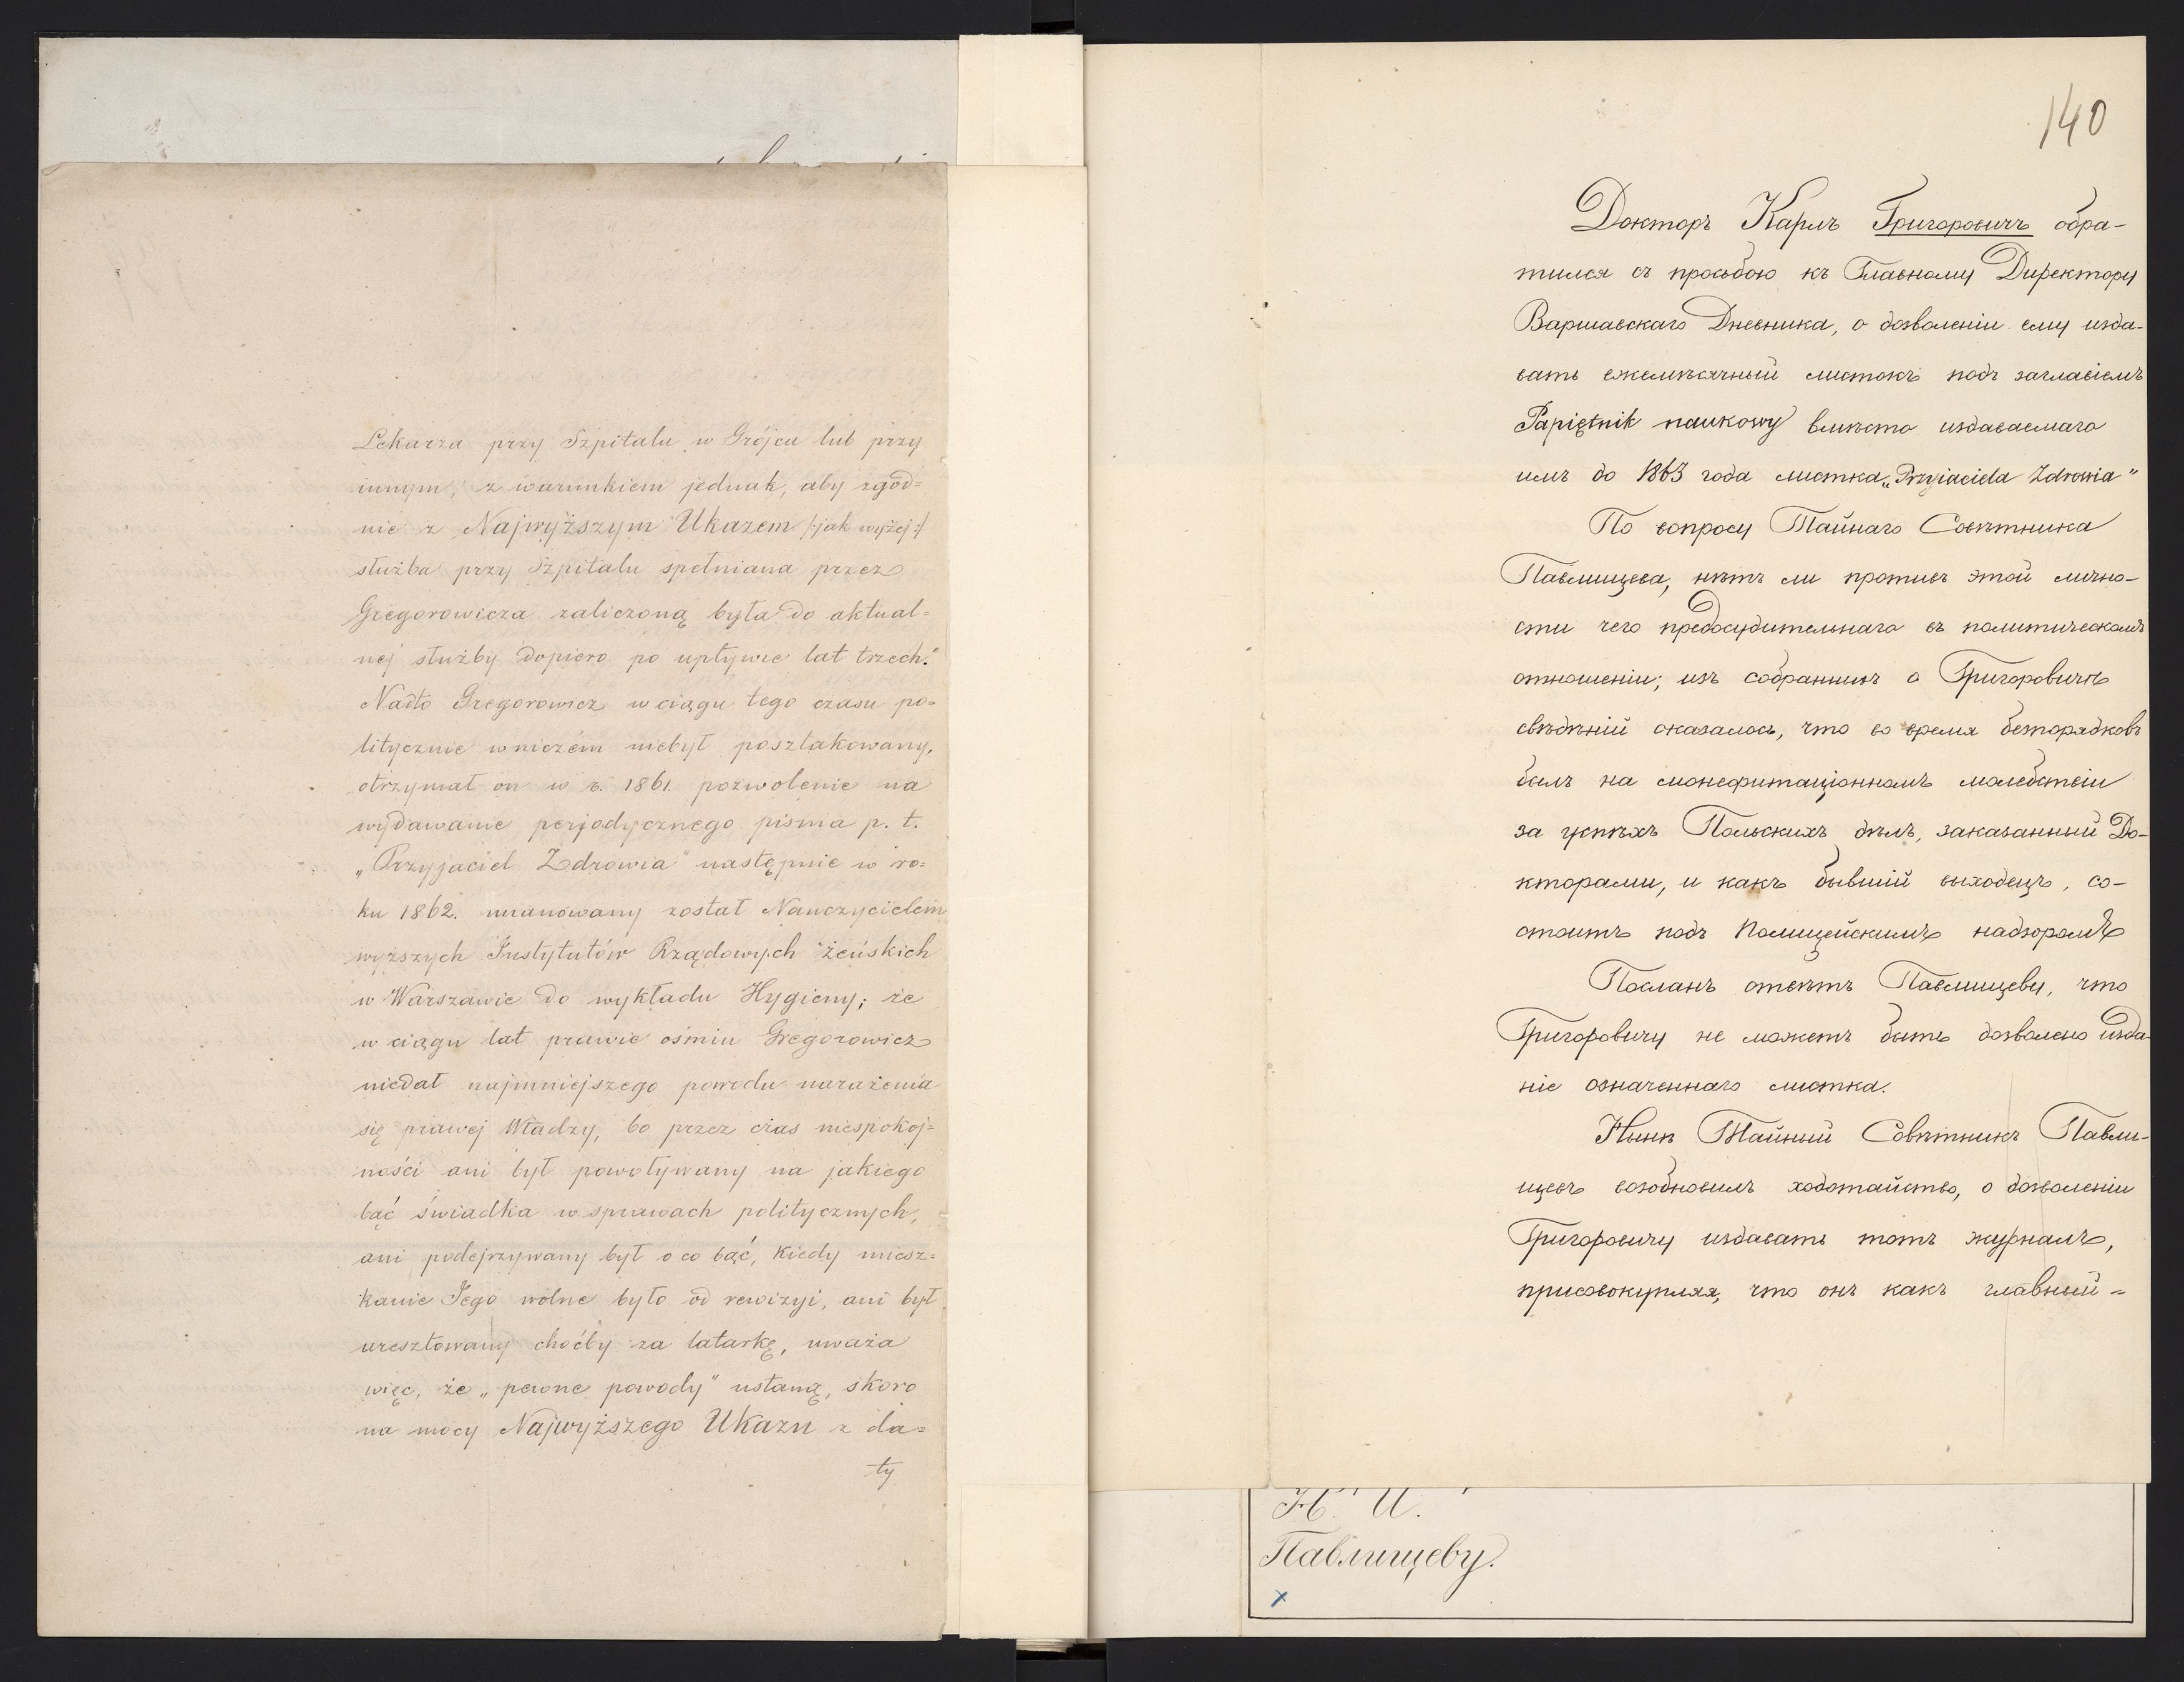 Lekarza przy Szpitalu w Grójcu lub przy
innym, z warunkiem jednak, aby zgod=
nie z Najwyższym Ukazem /:jak wyżej:/
służba przy Szpitalu spełniana przez
Gregorowicza zaliczoną była do aktual=
nej służby dopiero po upływie lat trzech."
Nadto Gregorowicz w ciągu tego czasu po=
litycznie w niczém niebył poszlakowany,
otrzymał on w r. 1861. pozwolenie na
wydawanie perjodycznego pisma p. t.
„Przyjaciel Zdrowia" następnie w ro=
ku 1862. mianowany został Nauczycielem
wyższych Instytutów Rządowych żeńskich
w Warszawie do wykładu Hygieny; że
w ciągu lat prawie ośmiu Gregorowicz
niedał najmniejszego powodu narażenia
się prawej Władzy, bo przez czas niespokoj=
ności ani był powoływany na jakiego
bąć świadka w sprawach politycznych,
ani podejrzywany był o co bąć, kiedy miesz=
kanie Jego wolne było od rewizyi, ani był
aresztowany choćby za latarkę, uważa
więc, że „pewne powody" ustaną, skoro
na mocy Najwyższego Ukazu z da=
ty
140
Докторъ Карлъ Григоровичъ обра-
тился съ просьбою къ Главному Директору
Варшавскаго Дневника, о дозволеніи ему изда-
вать ежемѣсячный листокъ подъ заглавіемъ
Papiętnik naukowy вмѣсто издаваемаго
имъ до 1863 года листка „Przyiaciela Zdrowia"
По вопросу Тайнаго Совѣтника
Павлищева, нѣтъ ли противъ этой лично-
сти чего предосудительнаго въ политическомъ
отношеніи; изъ собранныхъ о Григоровичѣ
свѣдѣній оказалось, что во время безпорядковъ
былъ на молебствіи
за успѣхъ Польскихъ дѣлъ, заказанный До-
кторами, и какъ бывшій выходецъ, со-
стоитъ подъ Полицейскимъ надзоромъ
Посланъ отвѣтъ Павлищеву, что
Григоровичу не можетъ быть дозволено изда-
ніе означеннаго листка.
Нынѣ Тайный Совѣтникъ Павли-
щевъ возобновилъ ходотайство, о дозволеніи
Григоровичу издавать тотъ журналъ,
присовокупляя, что онъ какъ главный =
Н. И.
Павлищеву.